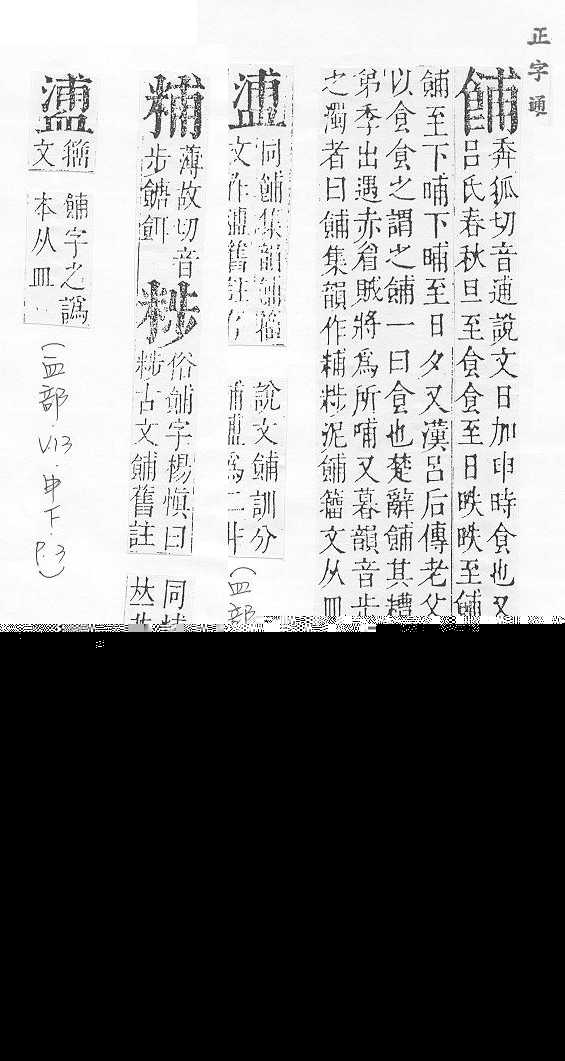 正字通
餔
奔狐切音逋說文日加申時食也又
呂氏春秋旦至食食至日昳昳至餔
餔至下晡下晡至日夕又漢呂后傳老父
以食食之謂之餔一曰食也楚辭餔其糟
弟季出遇赤眉賊將爲所哺又暮韻音步
之濁者曰餔集韻作䊇𥹴泥餔籀文从皿
同餔集韻餔籀
文作 舊註
說文餔訓分
爲二非
(皿部
䊇
薄故切音
步餹餌
俗餔字楊愼曰
古文餔舊註
同
籀
文
餔字之譌
本从皿
(皿部.V13.申下.P.3)